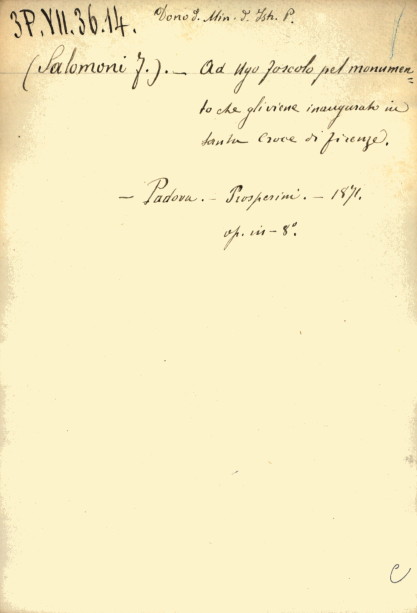 3P.VII.36.14. Dono d. Min. d. Istr. P.
(Salomoni F.). — Ad Ugo Foscolo pel monumen=
to che gli viene inaugurato in
Santa Croce di Firenze.
— Padova. — Prosperini. — 1871.
op. in-8º.